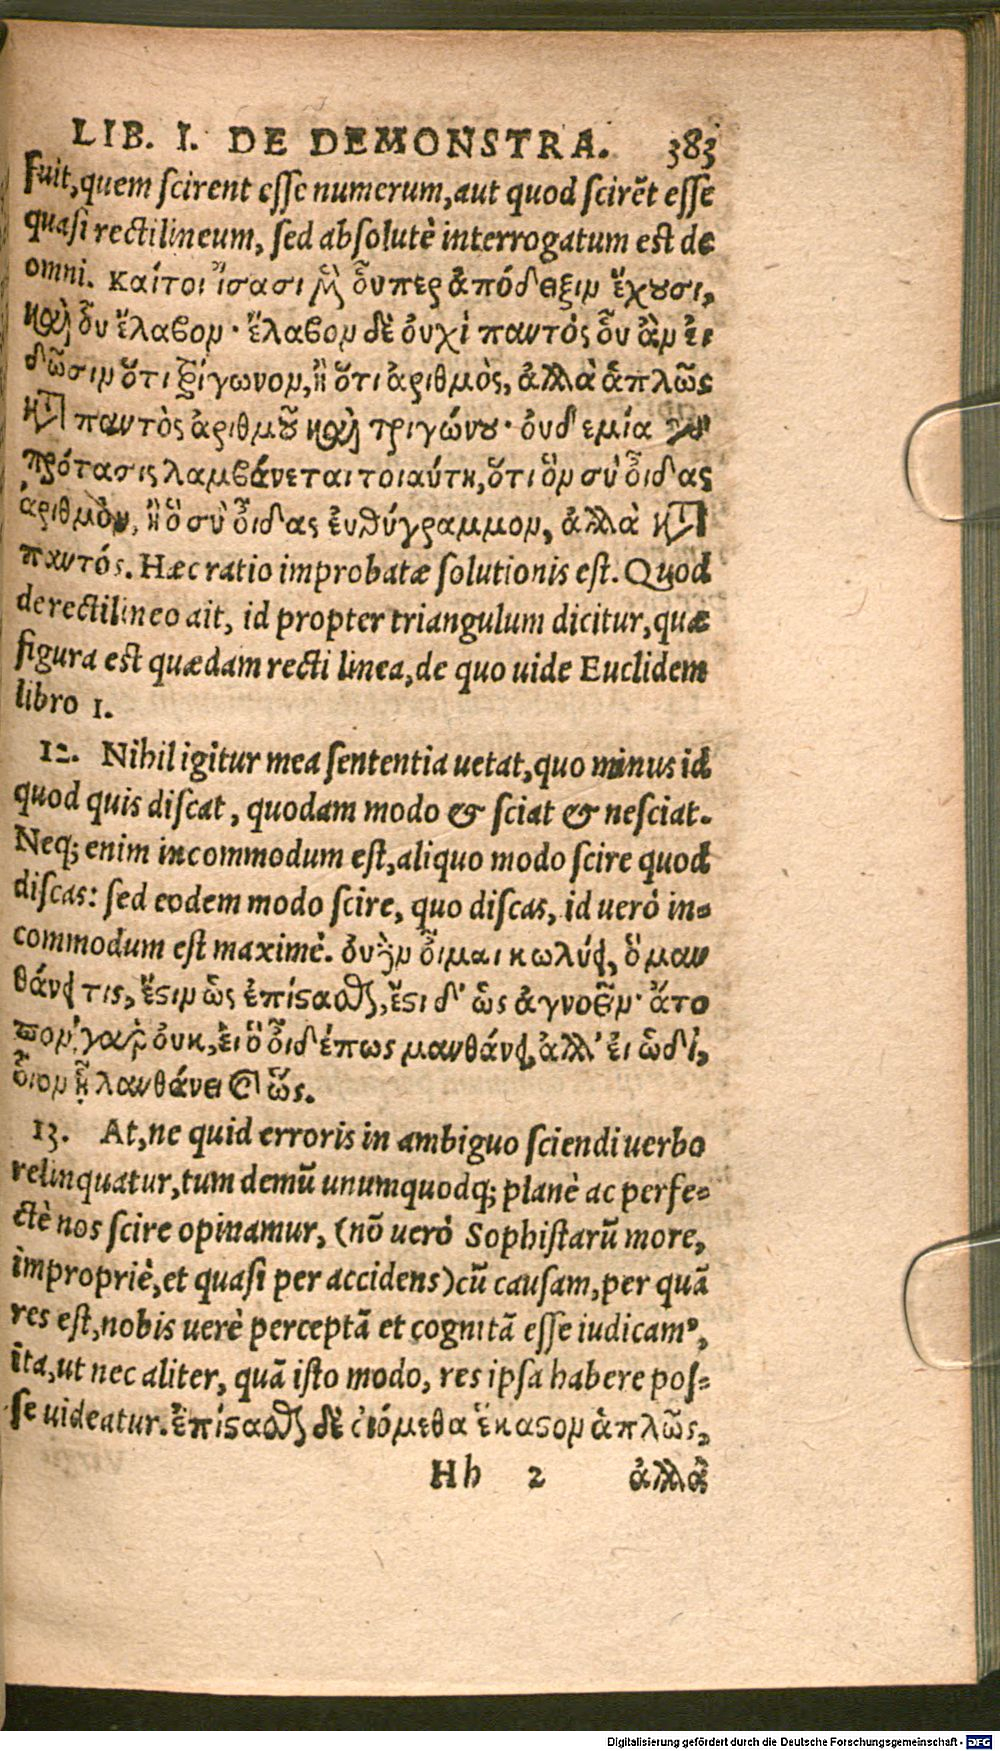 LIB. I. DE DEMONSTRA. 383
fuit, quem scirent esse numerum, aut quod sciret̃ esse
quasi rectilineum, sed absolutè interrogatum est de
omni. καίτοι ἴσασι μὲν οὗπερ ἀπόδειξιν ἔχουσι,
καὶ ὃν ἔλαβον· ἔλαβον δὲ ὀυχὶ παντὸς οὗ ἂν εἰ
δῶσιν ὅτι τρίγωνον, ἢ ὅτι ἀριθμὸς, ἀλλὰ ἁπλῶς
κατὰ παντὸς ἀριθμοῦ καὶ τριγώνου· ὀυδεμία γὰρ
πρότασις λαμβάνεται τοιαύτη, ὅτι ὃν σὺ οἶδας
ἀριθμὸν, ἢ ὃ σὺ οἶδας ἐυθύγραμμον, ἀλλὰ κατὰ
παντός. Hæc ratio improbatæ solutionis est. Quod
de rectilineo ait, id propter triangulum dicitur, quæ
figura est quædam recti linea, de quo uide Euclidem
libro 1.
12. Nihil igitur mea sententia uetat, quo minus id
quod quis discat, quodam modo & sciat & nesciat.
Neq; enim incommodum est, aliquo modo scire quod
discas: sed eodem modo scire, quo discas, id uerò in-
commodum est maximè. ὀυδὲν οἶμαι κωλύει, ὃ μαν
θάνει τις, ἔστιν ὡς ἐπίστασθαι, ἔστι δ' ὡς ἀγνοεῖν· ἄτο
πον γὰρ ὀυκ, εἰ ὃ οἶδέ πως μανθάνει, ἀλλ' εἰ ὡδὶ,
οἷον ᾗ μανθάνει καὶ ὥς.
13. At, ne quid erroris in ambiguo sciendi uerbo
relinquatur, tum demũ unumquodq; planè ac perfe-
ctè nos scire opinamur, (nõ uerò Sophistarũ more,
impropriè, et quasi per accidens) cũ causam, per quã
res est, nobis uerè perceptã et cognitã esse iudicam⁹,
ita, ut nec aliter, quã isto modo, res ipsa habere pos-
se uideatur. ἐπίστασθαι δὲ οἰόμεθα ἕκαστον ἁπλῶς,
Hh 2 ἀλλὰ
Digitalisierung gefördert durch die Deutsche Forschungsgemeinschaft - DFG